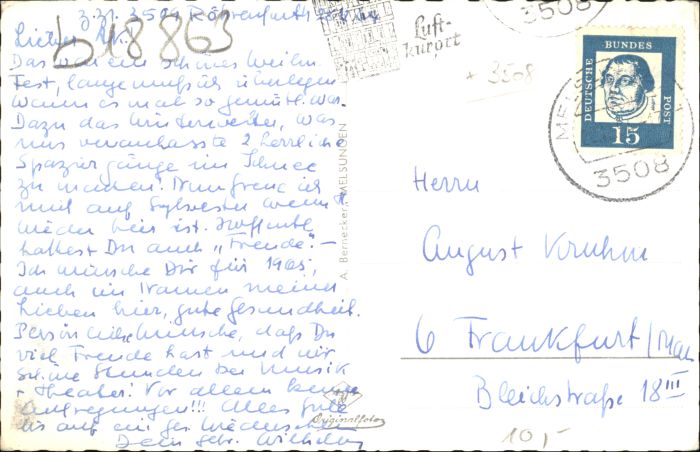 z.Zt. 3501 28.12.64
Lieber
b 18 863
Das war ein schönes Weihn.
Fest, lange muß ich überlegen
wann es mal so gemütl. war.
Dazu das Winterwetter, was
uns veranlasste 2 herrliche
Spaziergänge im Schnee
zu machen! Nun freue ich
mich auf Sylvester wenn
wieder hier ist. Hoffentl.
hattest Du auch "Freude". –
Ich wünsche Dir für 1965,
auch im Namen meiner
Lieben hier, gute Gesundheit.
Persönliche Wünsche, daß Du
viel Freude hast und wir
schöne Stunden bei Musik
+ Theater! Vor allem keine
Aufregungen!!! Alles Gute
bis auf ein ges. Wiedersehen
Dein Wilhelm
A. Bernecker, MELSUNGEN
Originalfoto
Luft-
kurort
3508
+ 3508
DEUTSCHE BUNDES POST
15
3508
Herrn
August
6 Frankfurt/Main
Bleichstraße 18 III
10,-